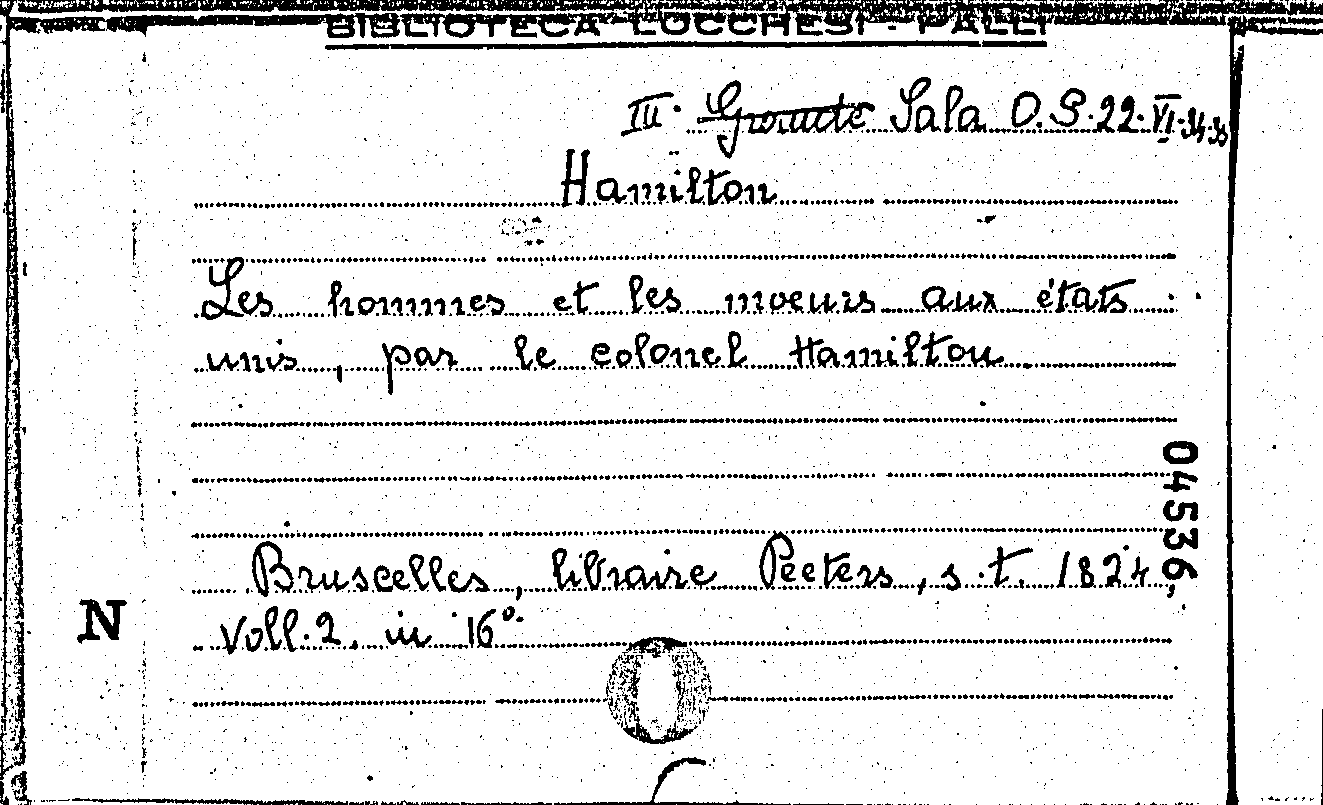 BIBLIOTECA LUCCHESI - PALLI
III. Sala O.S.22.VI.34.35
Hamilton
Les hommes et les moeurs aux états
unis, par le colonel Hamilton
04536
Bruscelles, libraire Peeters, s.t. 1824,
N
Voll. 2. in 16°.